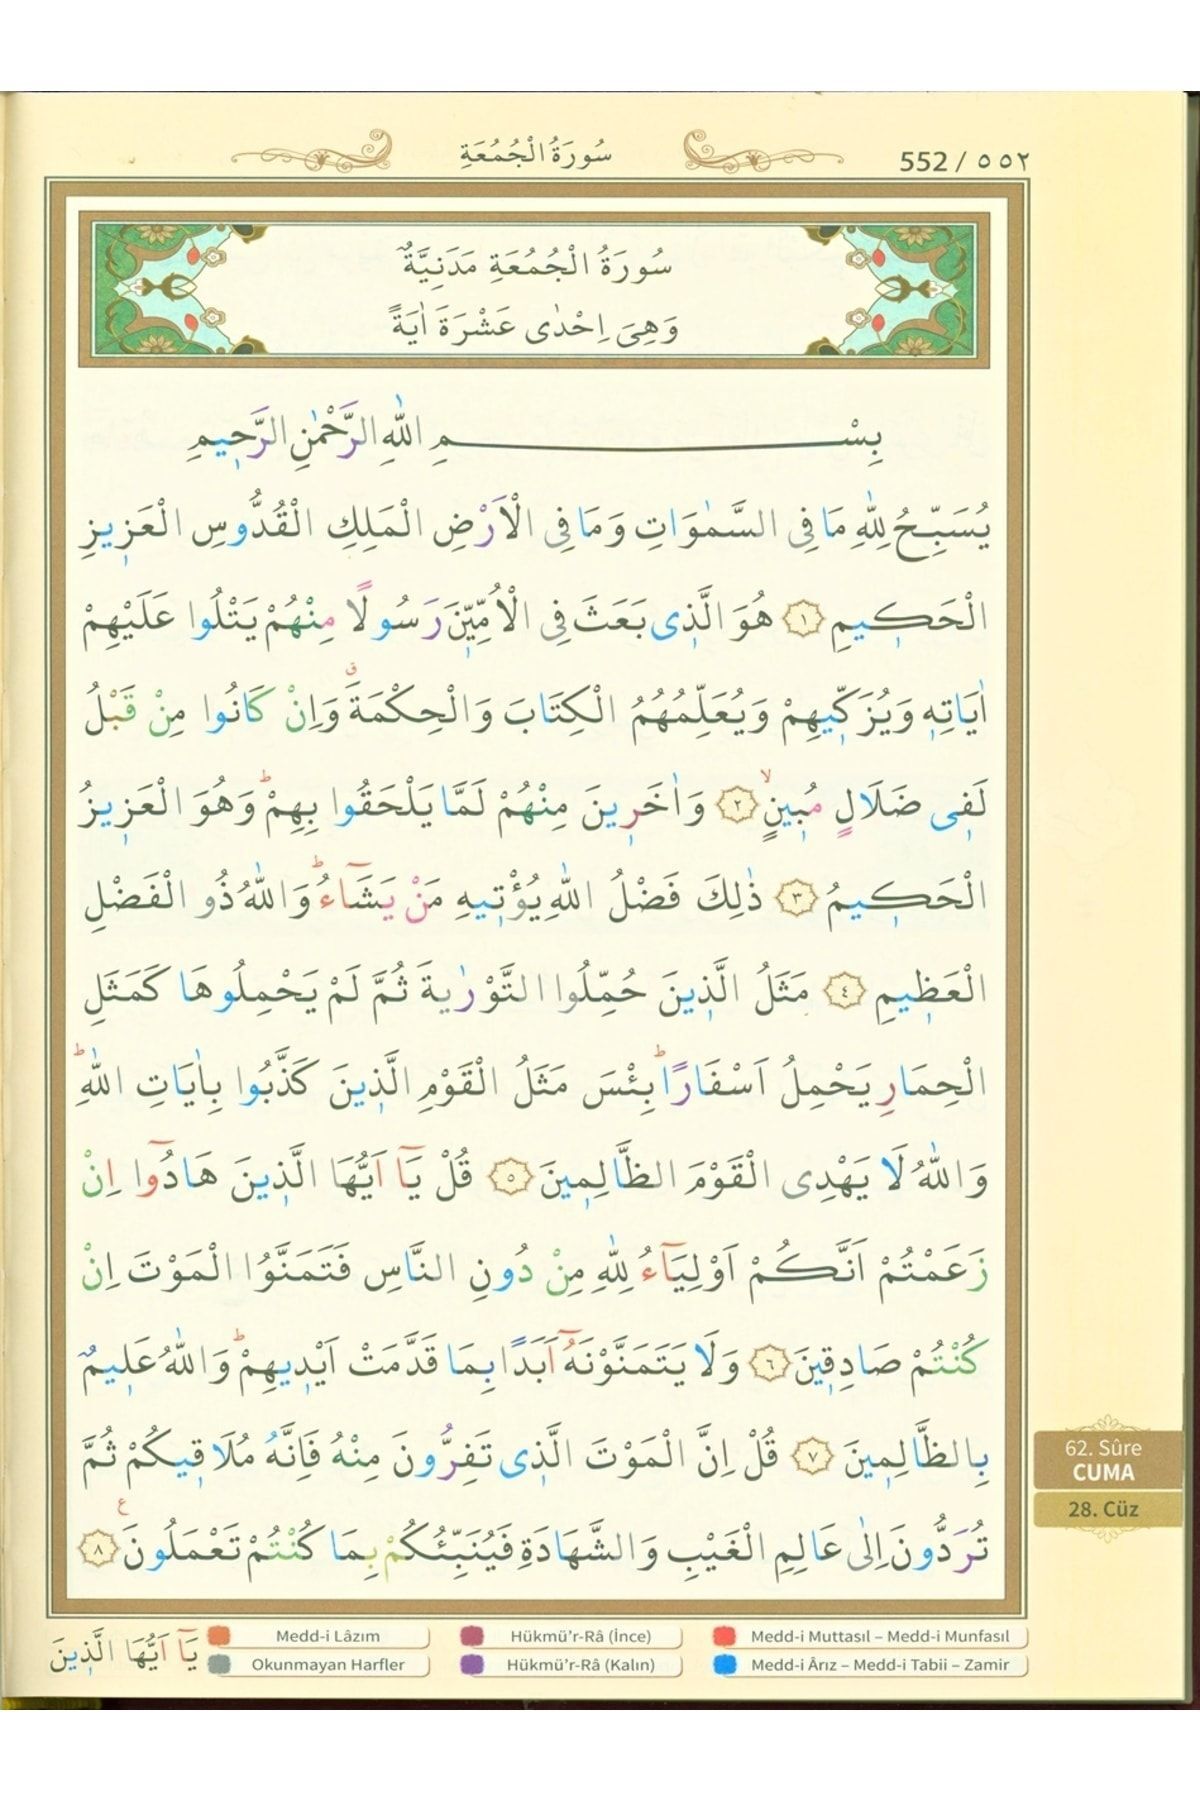 ٥٥٢ / 552
سُورَةُ الْجُمُعَةِ
سُورَةُ الْجُمُعَةِ مَدَنِيَّةٌ
وَهِىَ اِحْدٰى عَشْرَةَ اٰيَةً
بِسْمِ اللّٰهِ الرَّحْمٰنِ الرَّحِيمِ
يُسَبِّحُ لِلّٰهِ مَا فِى السَّمٰوَاتِ وَمَا فِى الْاَرْضِ الْمَلِكِ الْقُدُّوسِ الْعَزِيزِ
الْحَكِيمِ ﴿١﴾ هُوَ الَّذِى بَعَثَ فِى الْاُمِّيّنَ رَسُولًا مِنْهُمْ يَتْلُوا عَلَيْهِمْ
اٰيَاتِهِ وَيُزَكِّيهِمْ وَيُعَلِّمُهُمُ الْكِتَابَ وَالْحِكْمَةَۗ وَاِنْ كَانُوا مِنْ قَبْلُ
لَفِى ضَلَالٍ مُبِينٍۙ ﴿٢﴾ وَاٰخَرِينَ مِنْهُمْ لَمَّا يَلْحَقُوا بِهِمْۜ وَهُوَ الْعَزِيزُ
الْحَكِيمُ ﴿٣﴾ ذٰلِكَ فَضْلُ اللّٰهِ يُؤْتِيهِ مَنْ يَشَٓاءُۜ وَاللّٰهُ ذُو الْفَضْلِ
الْعَظِيمِ ﴿٤﴾ مَثَلُ الَّذِينَ حُمِّلُوا التَّوْرٰيةَ ثُمَّ لَمْ يَحْمِلُوهَا كَمَثَلِ
الْحِمَارِ يَحْمِلُ اَسْفَارًاۜ بِئْسَ مَثَلُ الْقَوْمِ الَّذِينَ كَذَّبُوا بِاٰيَاتِ اللّٰهِۜ
وَاللّٰهُ لَا يَهْدِى الْقَوْمَ الظَّالِمِينَ ﴿٥﴾ قُلْ يَٓا اَيُّهَا الَّذِينَ هَادُٓوا اِنْ
زَعَمْتُمْ اَنَّكُمْ اَوْلِيَٓاءُ لِلّٰهِ مِنْ دُونِ النَّاسِ فَتَمَنَّوُا الْمَوْتَ اِنْ
كُنْتُمْ صَادِقِينَ ﴿٦﴾ وَلَا يَتَمَنَّوْنَهُٓ اَبَدًا بِمَا قَدَّمَتْ اَيْدِيهِمْۜ وَاللّٰهُ عَلِيمٌ
بِالظَّالِمِينَ ﴿٧﴾ قُلْ اِنَّ الْمَوْتَ الَّذِى تَفِرُّونَ مِنْهُ فَاِنَّهُ مُلَاقِيكُمْ ثُمَّ
تُرَدُّونَ اِلٰى عَالِمِ الْغَيْبِ وَالشَّهَادَةِ فَيُنَبِّئُكُمْ بِمَا كُنْتُمْ تَعْمَلُونَ ع ﴿٨﴾
62. Sûre
CUMA
28. Cüz
يَٓا اَيُّهَا الَّذِينَ
Medd-i Lâzım
Hükmü'r-Râ (İnce)
Medd-i Muttasıl – Medd-i Munfasıl
Okunmayan Harfler
Hükmü'r-Râ (Kalın)
Medd-i Ârız – Medd-i Tabii – Zamir